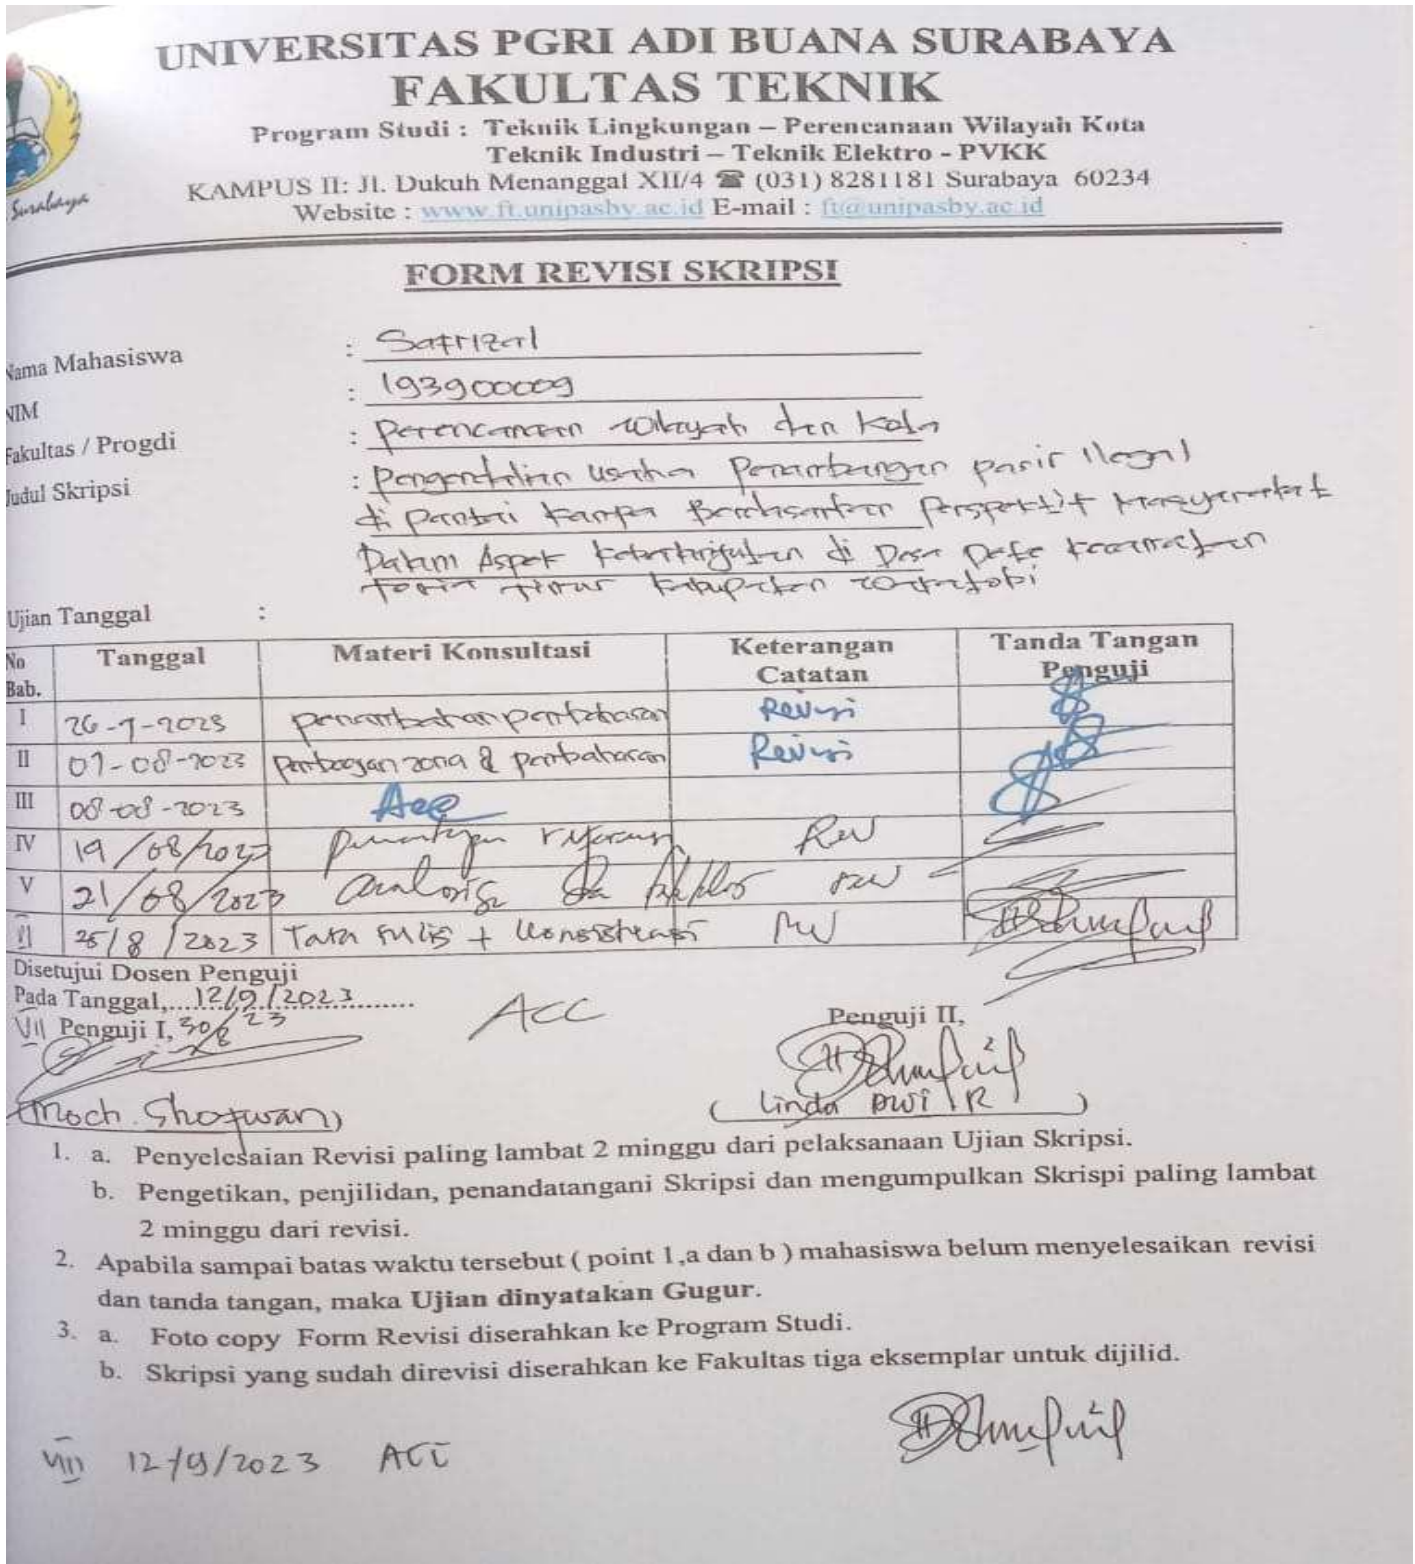 UNIVERSITAS PGRI ADI BUANA SURABAYA
FAKULTAS TEKNIK
Program Studi : Teknik Lingkungan – Perencanaan Wilayah Kota
Teknik Industri – Teknik Elektro - PVKK
KAMPUS II: Jl. Dukuh Menanggal XII/4 ☎ (031) 8281181 Surabaya 60234
Website : www.ft.unipasby.ac.id E-mail : ft@unipasby.ac.id
Surabaya
FORM REVISI SKRIPSI
Nama Mahasiswa : Safrizal
NIM : 193900009
Fakultas / Progdi : Perencanaan Wilayah dan Kota
Judul Skripsi : Pengendalian Usaha Penambangan pasir Ilegal
di Pantai Kampa Berdasarkan Perspektif Masyarakat
Dalam Aspek Keberlanjutan di Desa Kecamatan
Timur Kabupaten
Ujian Tanggal :
No Bab. Tanggal Materi Konsultasi Keterangan Catatan Tanda Tangan Penguji
I 26-7-2023 penambahan pembahasan Revisi
II 01-08-2023 pembagian zona & pembahasan Revisi
III 08-08-2023 Acc
IV 19/08/2023 referensi Rev
V 21/08/2023 analisis rev
VI 25/8/2023 Tata tulis + konsistensi rev
Disetujui Dosen Penguji
Pada Tanggal,....12/9/2023.........
ACC
VII Penguji I, 30/8 23
Penguji II,
(Moch. Shofwan)
( Linda DWI R )
1. a. Penyelesaian Revisi paling lambat 2 minggu dari pelaksanaan Ujian Skripsi.
b. Pengetikan, penjilidan, penandatangani Skripsi dan mengumpulkan Skrispi paling lambat
2 minggu dari revisi.
2. Apabila sampai batas waktu tersebut ( point 1,a dan b ) mahasiswa belum menyelesaikan revisi
dan tanda tangan, maka Ujian dinyatakan Gugur.
3. a. Foto copy Form Revisi diserahkan ke Program Studi.
b. Skripsi yang sudah direvisi diserahkan ke Fakultas tiga eksemplar untuk dijilid.
VIII 12/9/2023 ACC